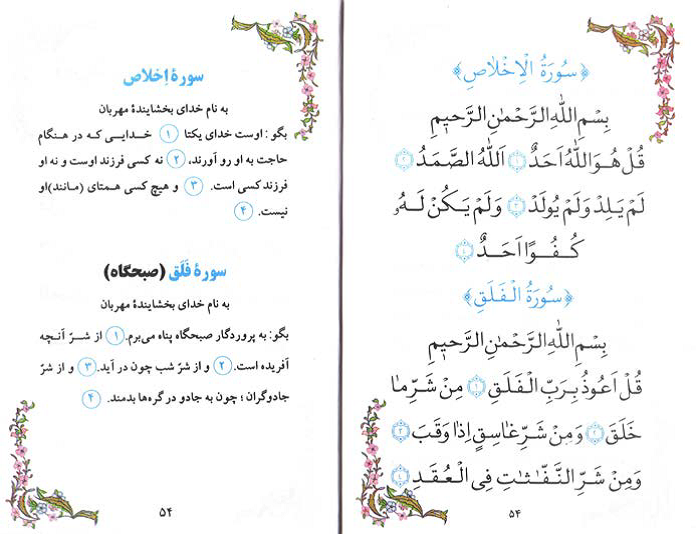 ﴿سُورَةُ الْاِخْلَاصِ﴾
بِسْمِ اللّٰهِ الرَّحْمٰنِ الرَّحٖيمِ
قُلْ هُوَ اللّٰهُ اَحَدٌ ١ اَللّٰهُ الصَّمَدُ ٢
لَمْ يَلِدْ وَلَمْ يُولَدْ ٣ وَلَمْ يَكُنْ لَهُ
كُفُوًا اَحَدٌ ٤
﴿سُورَةُ الْفَلَقِ﴾
بِسْمِ اللّٰهِ الرَّحْمٰنِ الرَّحٖيمِ
قُلْ اَعُوذُ بِرَبِّ الْفَلَقِ ١ مِنْ شَرِّ مٰا
خَلَقَ ٢ وَمِنْ شَرِّ غٰاسِقٍ اِذٰا وَقَبَ ٣
وَمِنْ شَرِّ النَّفّٰاثٰاتِ فِى الْعُقَدِ ٤
۵۴
سورهٔ اِخلاص
به نام خدای بخشایندهٔ مهربان
بگو : اوست خدای یکتا ۱ خدایی که در هنگام
حاجت به او رو آورند، ۲ نه کسی فرزند اوست و نه او
فرزند کسی است. ۳ و هیچ کسی همتای (مانند)او
نیست. ۴
سورهٔ فَلَق (صبحگاه)
به نام خدای بخشایندهٔ مهربان
بگو: به پروردگار صبحگاه پناه می‌برم. ۱ از شرّ آنچه
آفریده است. ۲ و از شرّ شب چون در آید. ۳ و از شرّ
جادوگران ؛ چون به جادو در گره‌ها بدمند. ۴
۵۴